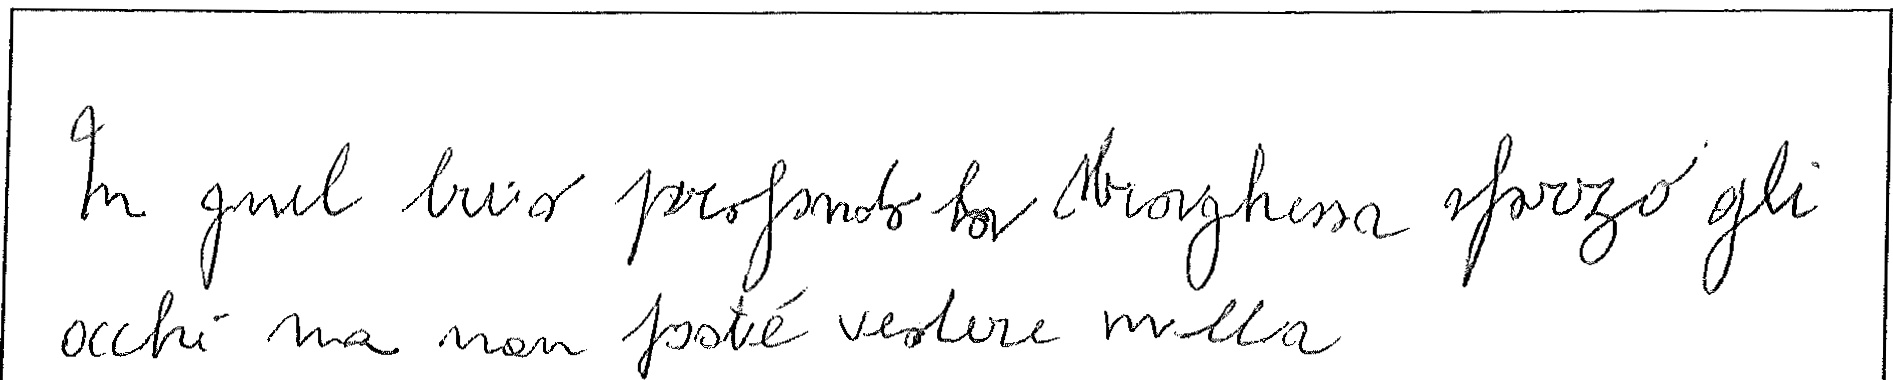 In quel buio profondo la Borghesa sforzó gli
occhi ma non poté vedere nulla